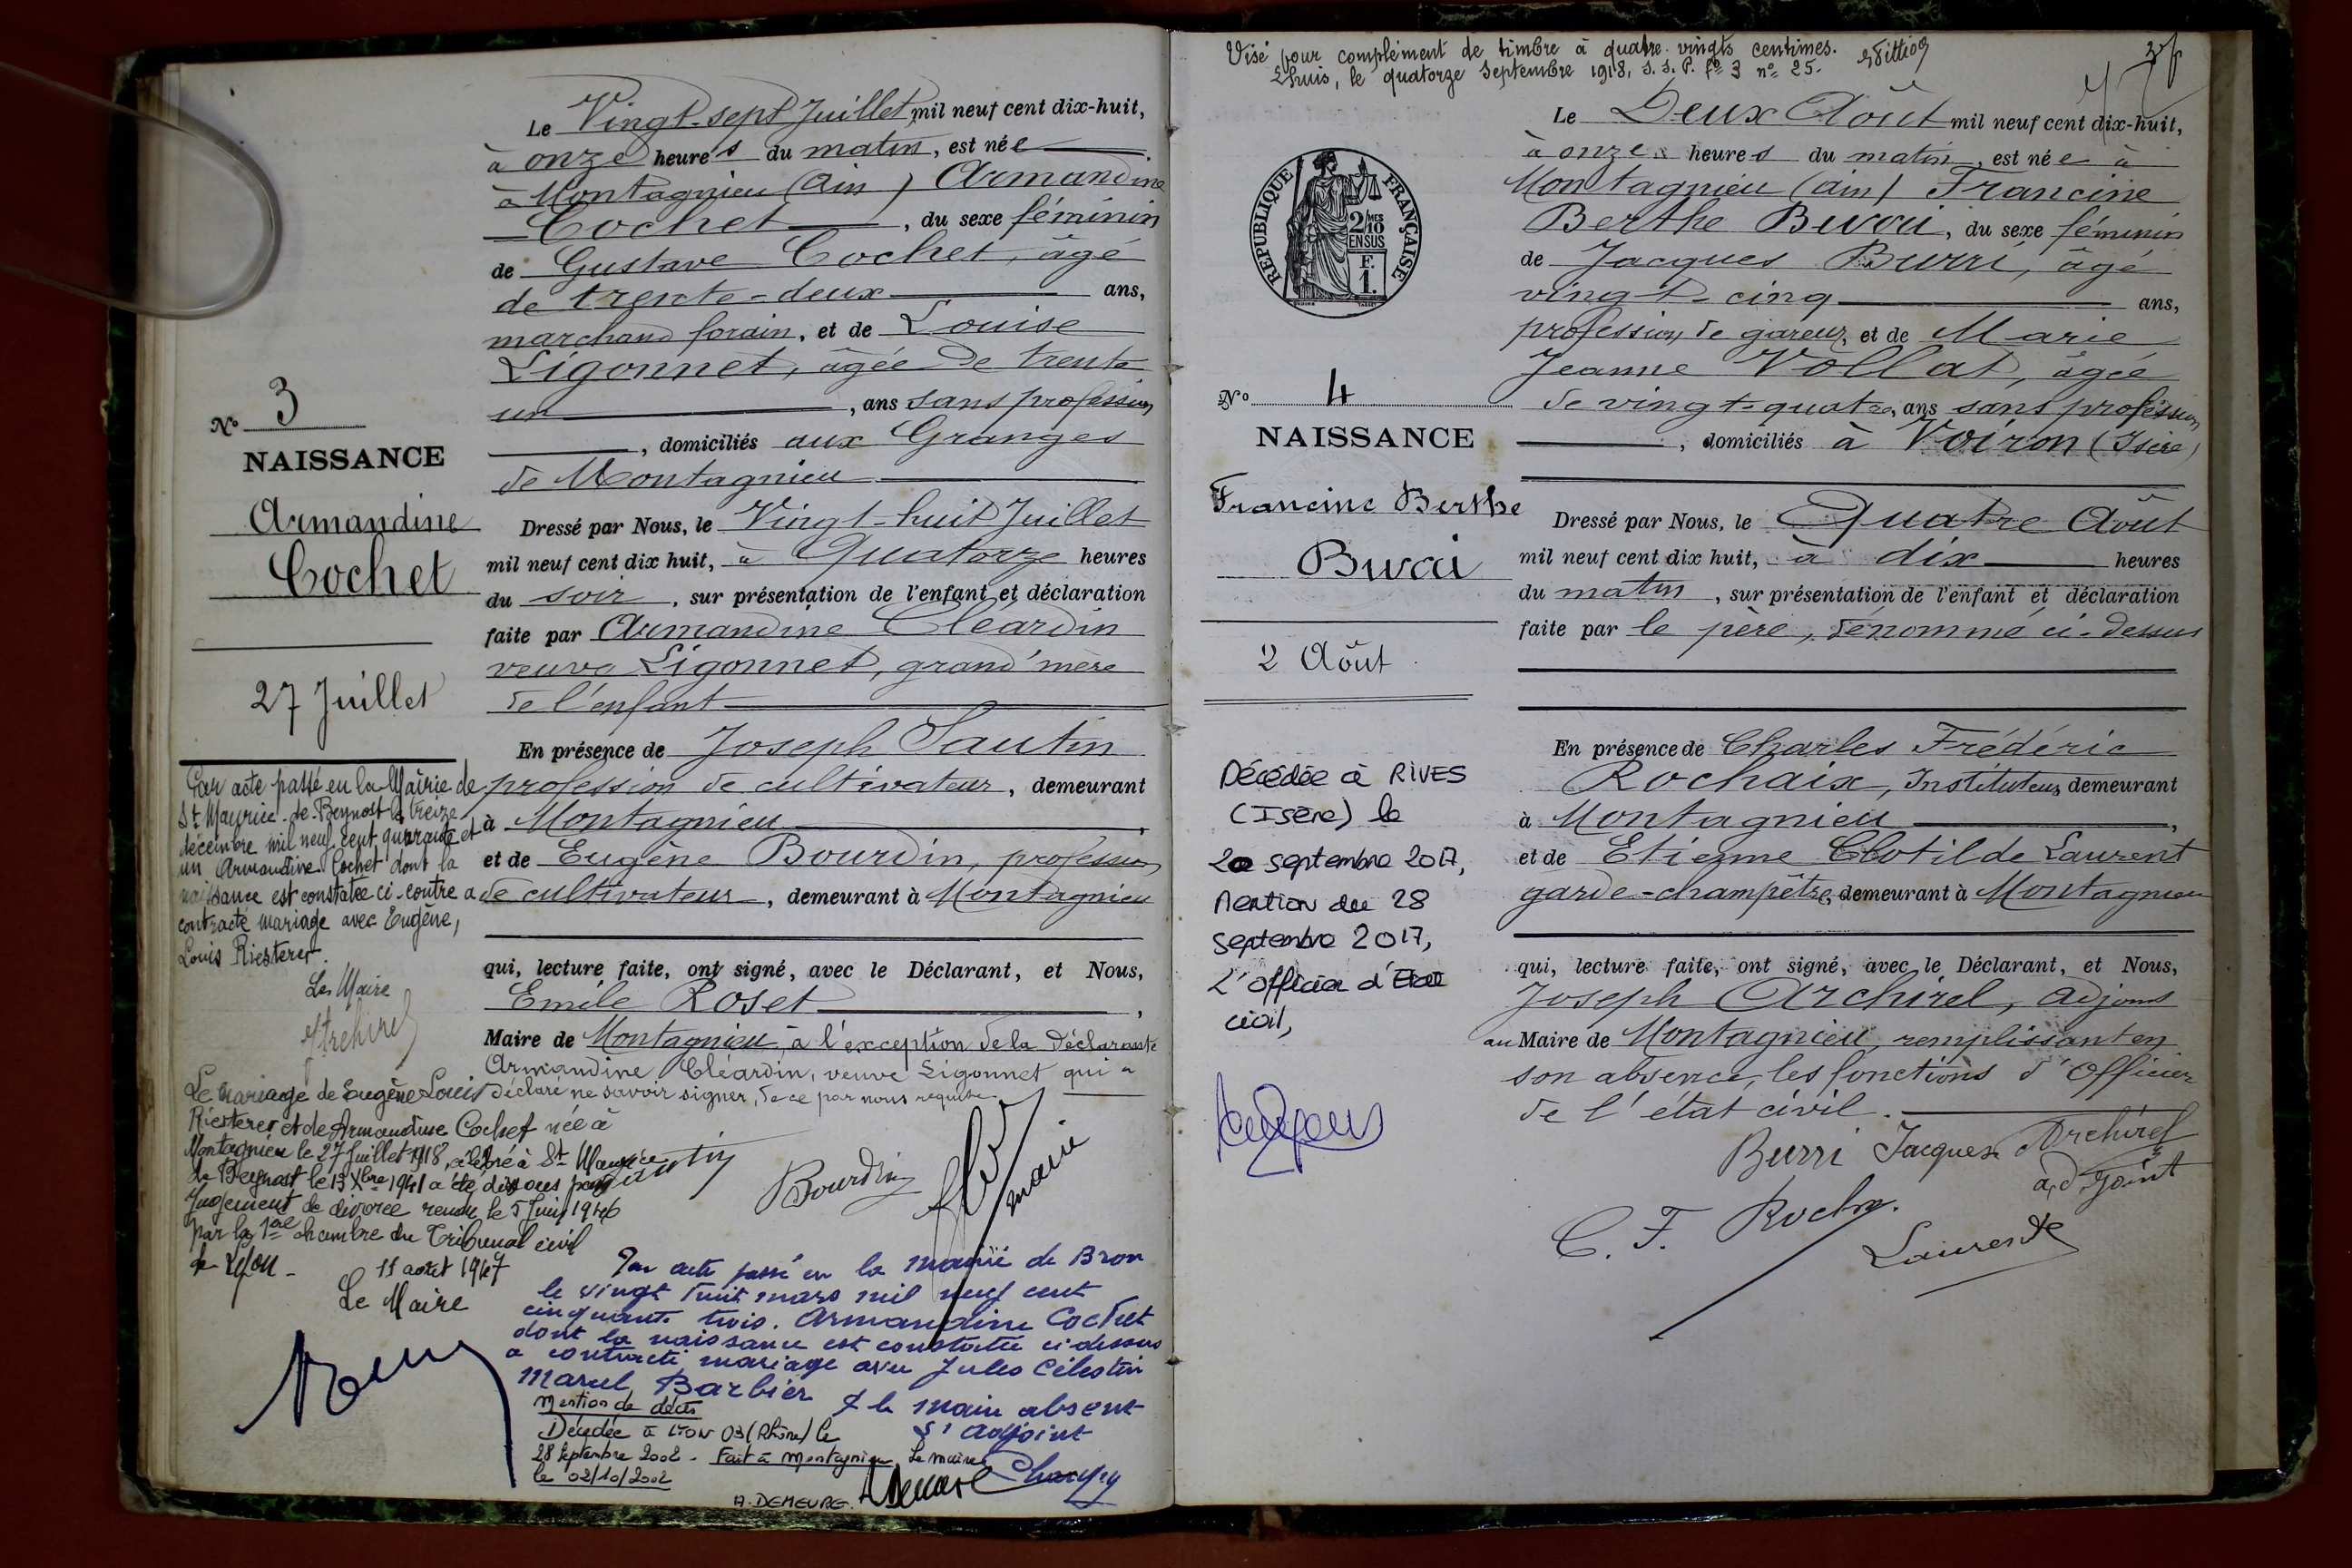 Le Vingt-sept Juillet mil neuf cent dix-huit,
à onze heures du matin, est née
à Montagnieu (Ain) Armandine
Cochet, du sexe féminin
de Gustave Cochet, âgé
de trente-deux ans,
marchand forain, et de Louise
Ligonnet, âgée de trente
un, ans sans profession
, domiciliés aux Granges
de Montagnieu
N° 3
NAISSANCE
Armandine
Cochet
27 Juillet
Dressé par Nous, le Vingt-huit Juillet
mil neuf cent dix huit, à Quatorze heures
du soir, sur présentation de l'enfant et déclaration
faite par Armandine Cléardin
veuve Ligonnet, grand'mère
de l'enfant
En présence de Joseph Sautin
profession de cultivateur, demeurant
à Montagnieu,
et de Eugène Bourdin, profession
de cultivateur, demeurant à Montagnieu
qui, lecture faite, ont signé, avec le Déclarant, et Nous,
Emile Roset,
Maire de Montagnieu, à l'exception de la déclarante
Armandine Cléardin, veuve Ligonnet qui a
déclaré ne savoir signer, de ce par nous requise.
Bourdin
maire
Par acte passé en la Mairie de
St Maurice-de-Beynost le treize
décembre mil neuf cent quarante et
un Armandine Cochet dont la
naissance est constatée ci-contre a
contracté mariage avec Eugène,
Louis Riesterer.
Le Maire
Archirel
Le mariage de Eugène Louis
Riesterer et de Armandine Cochet née à
Montagnieu le 27 Juillet 1918, célébré à St Maurice
de Beynost le 13 Xbre 1941 a été dissous par
Jugement de divorce rendu le 5 Juin 1946
par la 1ère chambre du Tribunal civil
de Lyon -
11 août 1947
Le Maire
Par acte passé en la mairie de Bron
le vingt huit mars mil neuf cent
cinquante trois. Armandine Cochet
dont la naissance est constatée ci-dessus
a contracté mariage avec Jules Célestin
Marcel Barbier
le maire absent
l'adjoint
Mention de décès
Décédée à LYON 03 (Rhône) le
28 Septembre 2002 - Fait à Montagnieu Le maire
le 02/10/2002
A. DEMEURE.
Visé pour complément de timbre à quatre-vingts centimes.
Lhuis, le quatorze Septembre 1918, S. S. P. f° 3 n° 25.
RÉPUBLIQUE FRANÇAISE
2/10
MES
EN SUS
F.
1.
N° 4
NAISSANCE
Francine Berthe
Burri
2 Août
Le Deux Août mil neuf cent dix-huit,
à onze heures du matin, est née à
Montagnieu (Ain) Francine
Berthe Burri, du sexe féminin
de Jacques Burri, âgé
vingt-cinq ans,
profession de gareur, et de Marie
Jeanne Vollat, âgée
de vingt-quatre, ans sans profession
, domiciliés à Voiron (Isère)
Dressé par Nous, le Quatre Août
mil neuf cent dix huit, à dix heures
du matin, sur présentation de l'enfant et déclaration
faite par le père, dénommé ci-dessus
En présence de Charles Frédéric
Rochaix, Instituteur, demeurant
à Montagnieu,
et de Etienne Clotilde Laurent
garde-champêtre, demeurant à Montagnieu
qui, lecture faite, ont signé, avec le Déclarant, et Nous,
Joseph Archirel, adjoint
au Maire de Montagnieu, remplissant en
son absence, les fonctions d'Officier
de l'état civil.
Burri Jacques Archirel
adjoint
C. F. Rochx.
Laurent
Décédée à RIVES
(Isère) le
20 septembre 2017,
Mention du 28
septembre 2017,
L'officier d'Etat
civil,